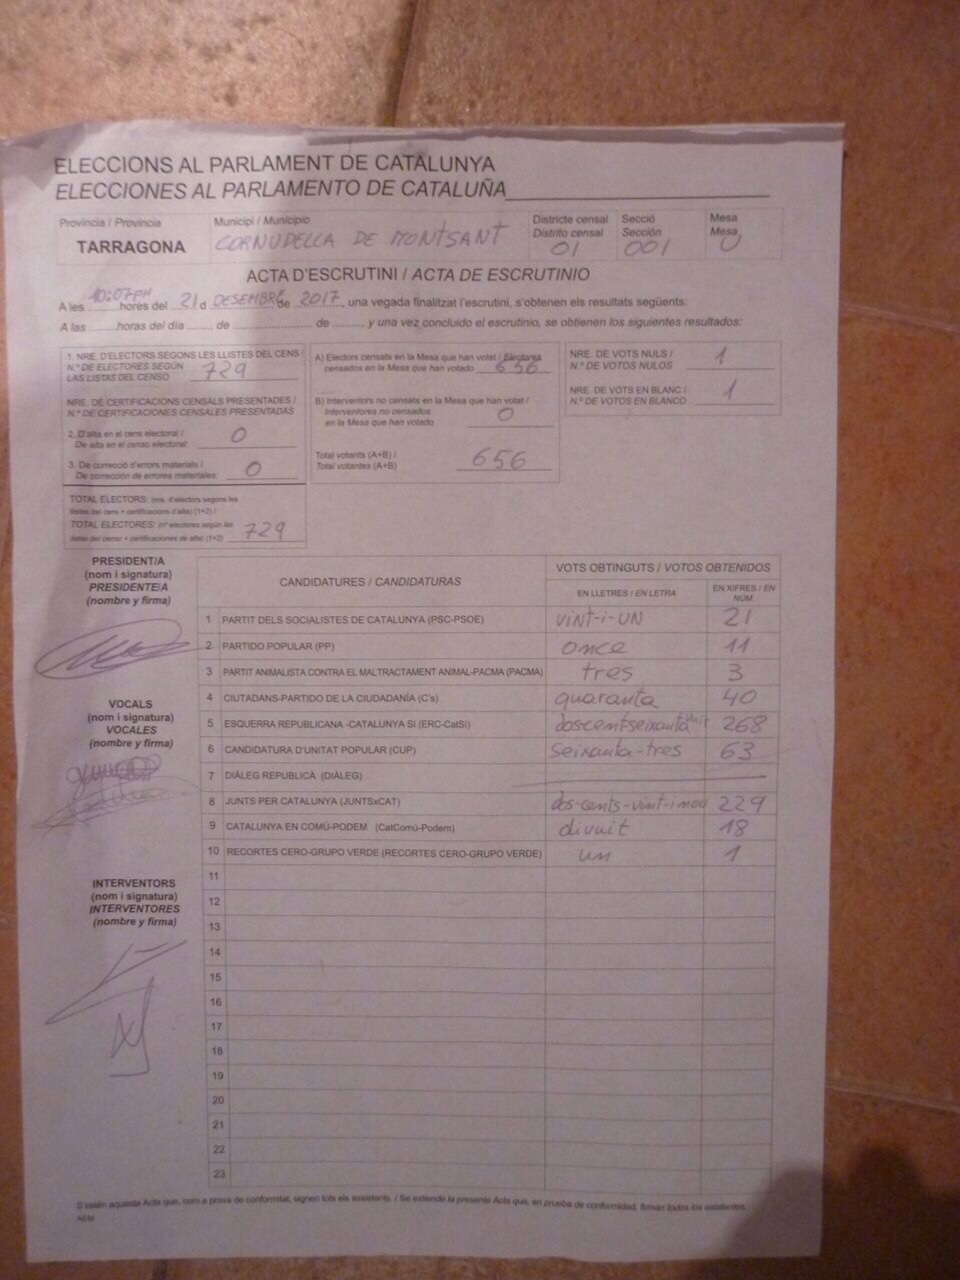 ELECCIONS AL PARLAMENT DE CATALUNYA
ELECCIONES AL PARLAMENTO DE CATALUÑA
Província / Provincia
TARRAGONA
Municipi / Municipio
CORNUDELLA DE MONTSANT
Districte censal
Distrito censal
01
Secció
Sección
001
Mesa
Mesa
U
ACTA D'ESCRUTINI / ACTA DE ESCRUTINIO
A les 10:07PM hores del 21 d DESEMBRE de 2017, una vegada finalitzat l'escrutini, s'obtenen els resultats següents:
A las ........ horas del día ......., de ........................ de ........, y una vez concluido el escrutinio, se obtienen los siguientes resultados:
1. NRE. D'ELECTORS SEGONS LES LLISTES DEL CENS /
N.º DE ELECTORES SEGÚN
LAS LISTAS DEL CENSO 729
NRE. DE CERTIFICACIONS CENSALS PRESENTADES /
N.º DE CERTIFICACIONES CENSALES PRESENTADAS
2. D'alta en el cens electoral /
De alta en el censo electoral: 0
3. De correcció d'errors materials /
De corrección de errores materiales: 0
TOTAL ELECTORS: (nre. d'electors segons les
llistes del cens + certificacions d'alta) (1+2) /
TOTAL ELECTORES: (nº electores según las
listas del censo + certificaciones de alta) (1+2) 729
A) Electors censats en la Mesa que han votat / Electores
censados en la Mesa que han votado 656
B) Interventors no censats en la Mesa que han votat /
Interventores no censados
en la Mesa que han votado 0
Total votants (A+B) /
Total votantes (A+B) 656
NRE. DE VOTS NULS /
N.º DE VOTOS NULOS 1
NRE. DE VOTS EN BLANC /
N.º DE VOTOS EN BLANCO 1
PRESIDENT/A
(nom i signatura)
PRESIDENTE/A
(nombre y firma)
VOCALS
(nom i signatura)
VOCALES
(nombre y firma)
INTERVENTORS
(nom i signatura)
INTERVENTORES
(nombre y firma)
CANDIDATURES / CANDIDATURAS
VOTS OBTINGUTS / VOTOS OBTENIDOS
EN LLETRES / EN LETRA
EN XIFRES / EN
NÚM.
1 PARTIT DELS SOCIALISTES DE CATALUNYA (PSC-PSOE) vint-i-UN 21
2 PARTIDO POPULAR (PP) once 11
3 PARTIT ANIMALISTA CONTRA EL MALTRACTAMENT ANIMAL-PACMA (PACMA) tres 3
4 CIUTADANS-PARTIDO DE LA CIUDADANÍA (C's) quaranta 40
5 ESQUERRA REPUBLICANA -CATALUNYA SÍ (ERC-CatSí) doscentseixantavuit 268
6 CANDIDATURA D'UNITAT POPULAR (CUP) seixanta-tres 63
7 DIÀLEG REPUBLICÀ (DIÀLEG)
8 JUNTS PER CATALUNYA (JUNTSxCAT) dos-cents-vint-i-nou 229
9 CATALUNYA EN COMÚ-PODEM (CatComú-Podem) divuit 18
10 RECORTES CERO-GRUPO VERDE (RECORTES CERO-GRUPO VERDE) un 1
11
12
13
14
15
16
17
18
19
20
21
22
23
S'estén aquesta Acta que, com a prova de conformitat, signen tots els assistents. / Se extiende la presente Acta que, en prueba de conformidad, firman todos los asistentes.